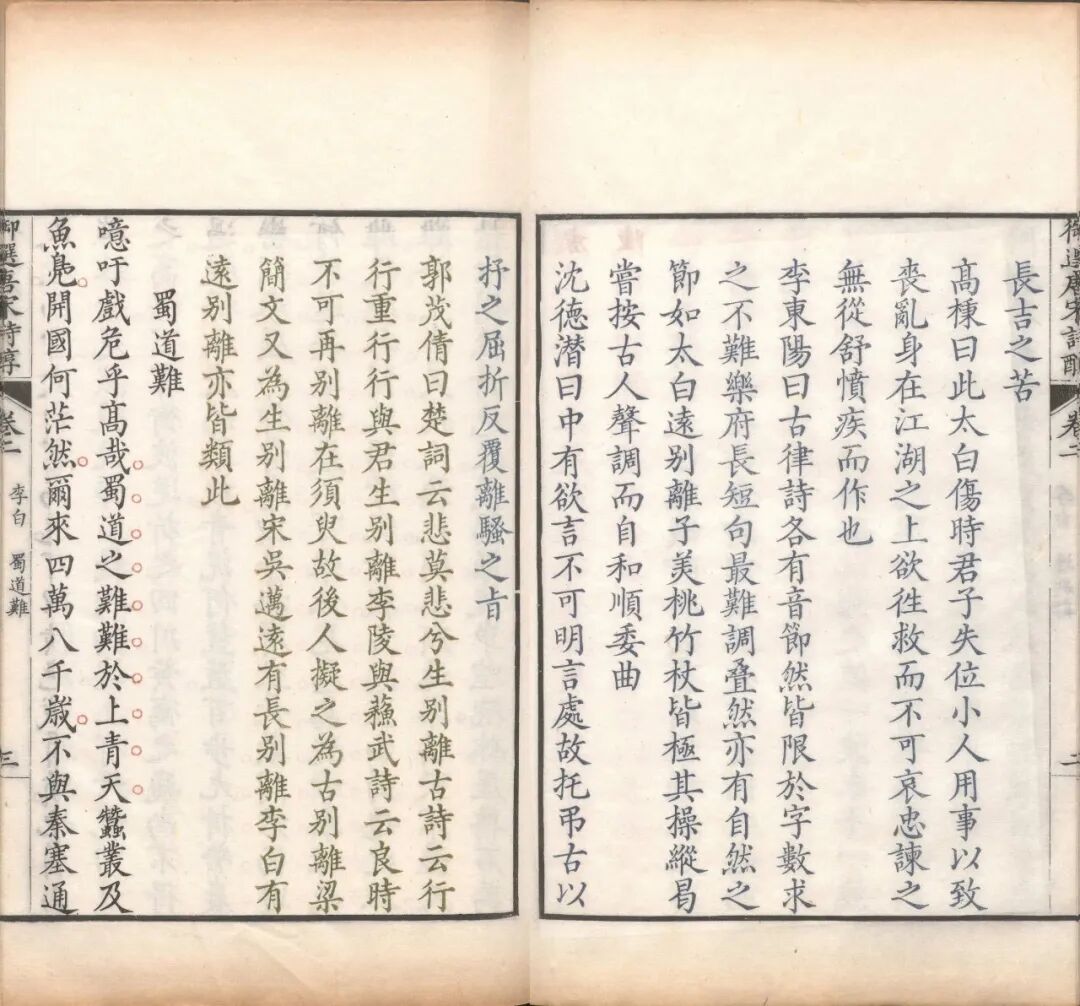 長吉之苦
高棅曰此太白傷時君子失位小人用事以致
喪亂身在江湖之上欲徃救而不可哀忠諫之
無從舒憤疾而作也
李東陽曰古律詩各有音節然皆限於字數求
之不難樂府長短句最難調叠然亦有自然之
節如太白遠别離子美桃竹杖皆極其操縱曷
嘗按古人聲調而自和順委曲
沈徳潜曰中有欲言不可明言處故托弔古以
抒之屈折反覆離騷之㫖
郭茂倩曰楚詞云悲莫悲兮生别離古詩云行
行重行行與君生别離李陵與蘇武詩云良時
不可再别離在須臾故後人擬之為古别離梁
簡文又為生别離宋吳邁遠有長别離李白有
遠别離亦皆類此
蜀道難
噫吁戲危乎髙哉蜀道之難難於上青天蠶叢及
魚鳧開國何茫然爾來四萬八千歳不與秦塞通
御選唐宋詩醇
卷二
李白 蜀道難
三